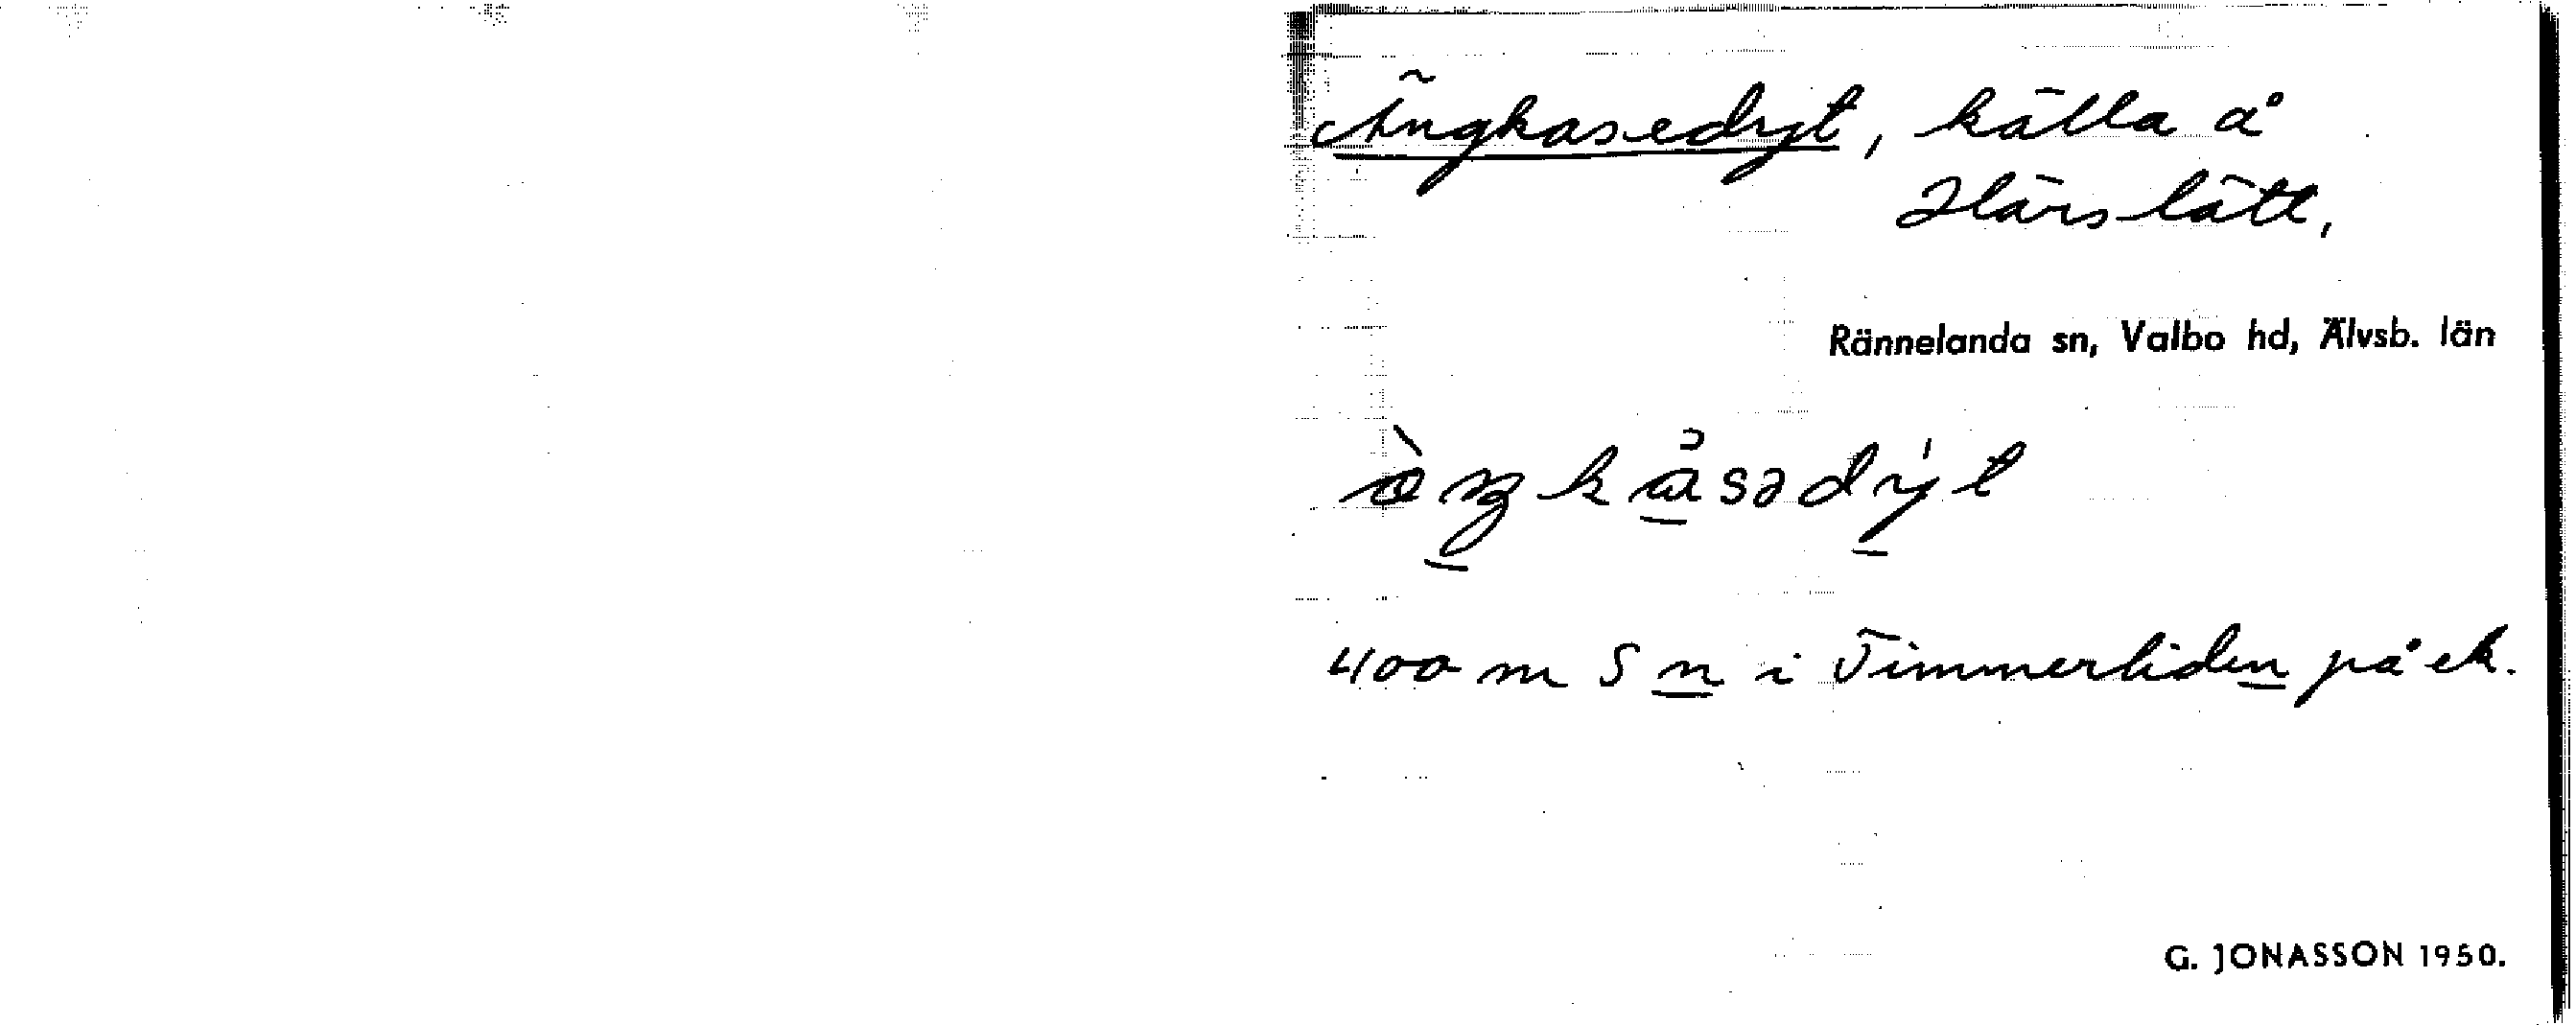 Ängkasedryt, källa å
Härslätt,
Rännelanda sn, Valbo hd, Älvsb. län
400 m S n i Timmerliden på ek.
G. JONASSON 1950.